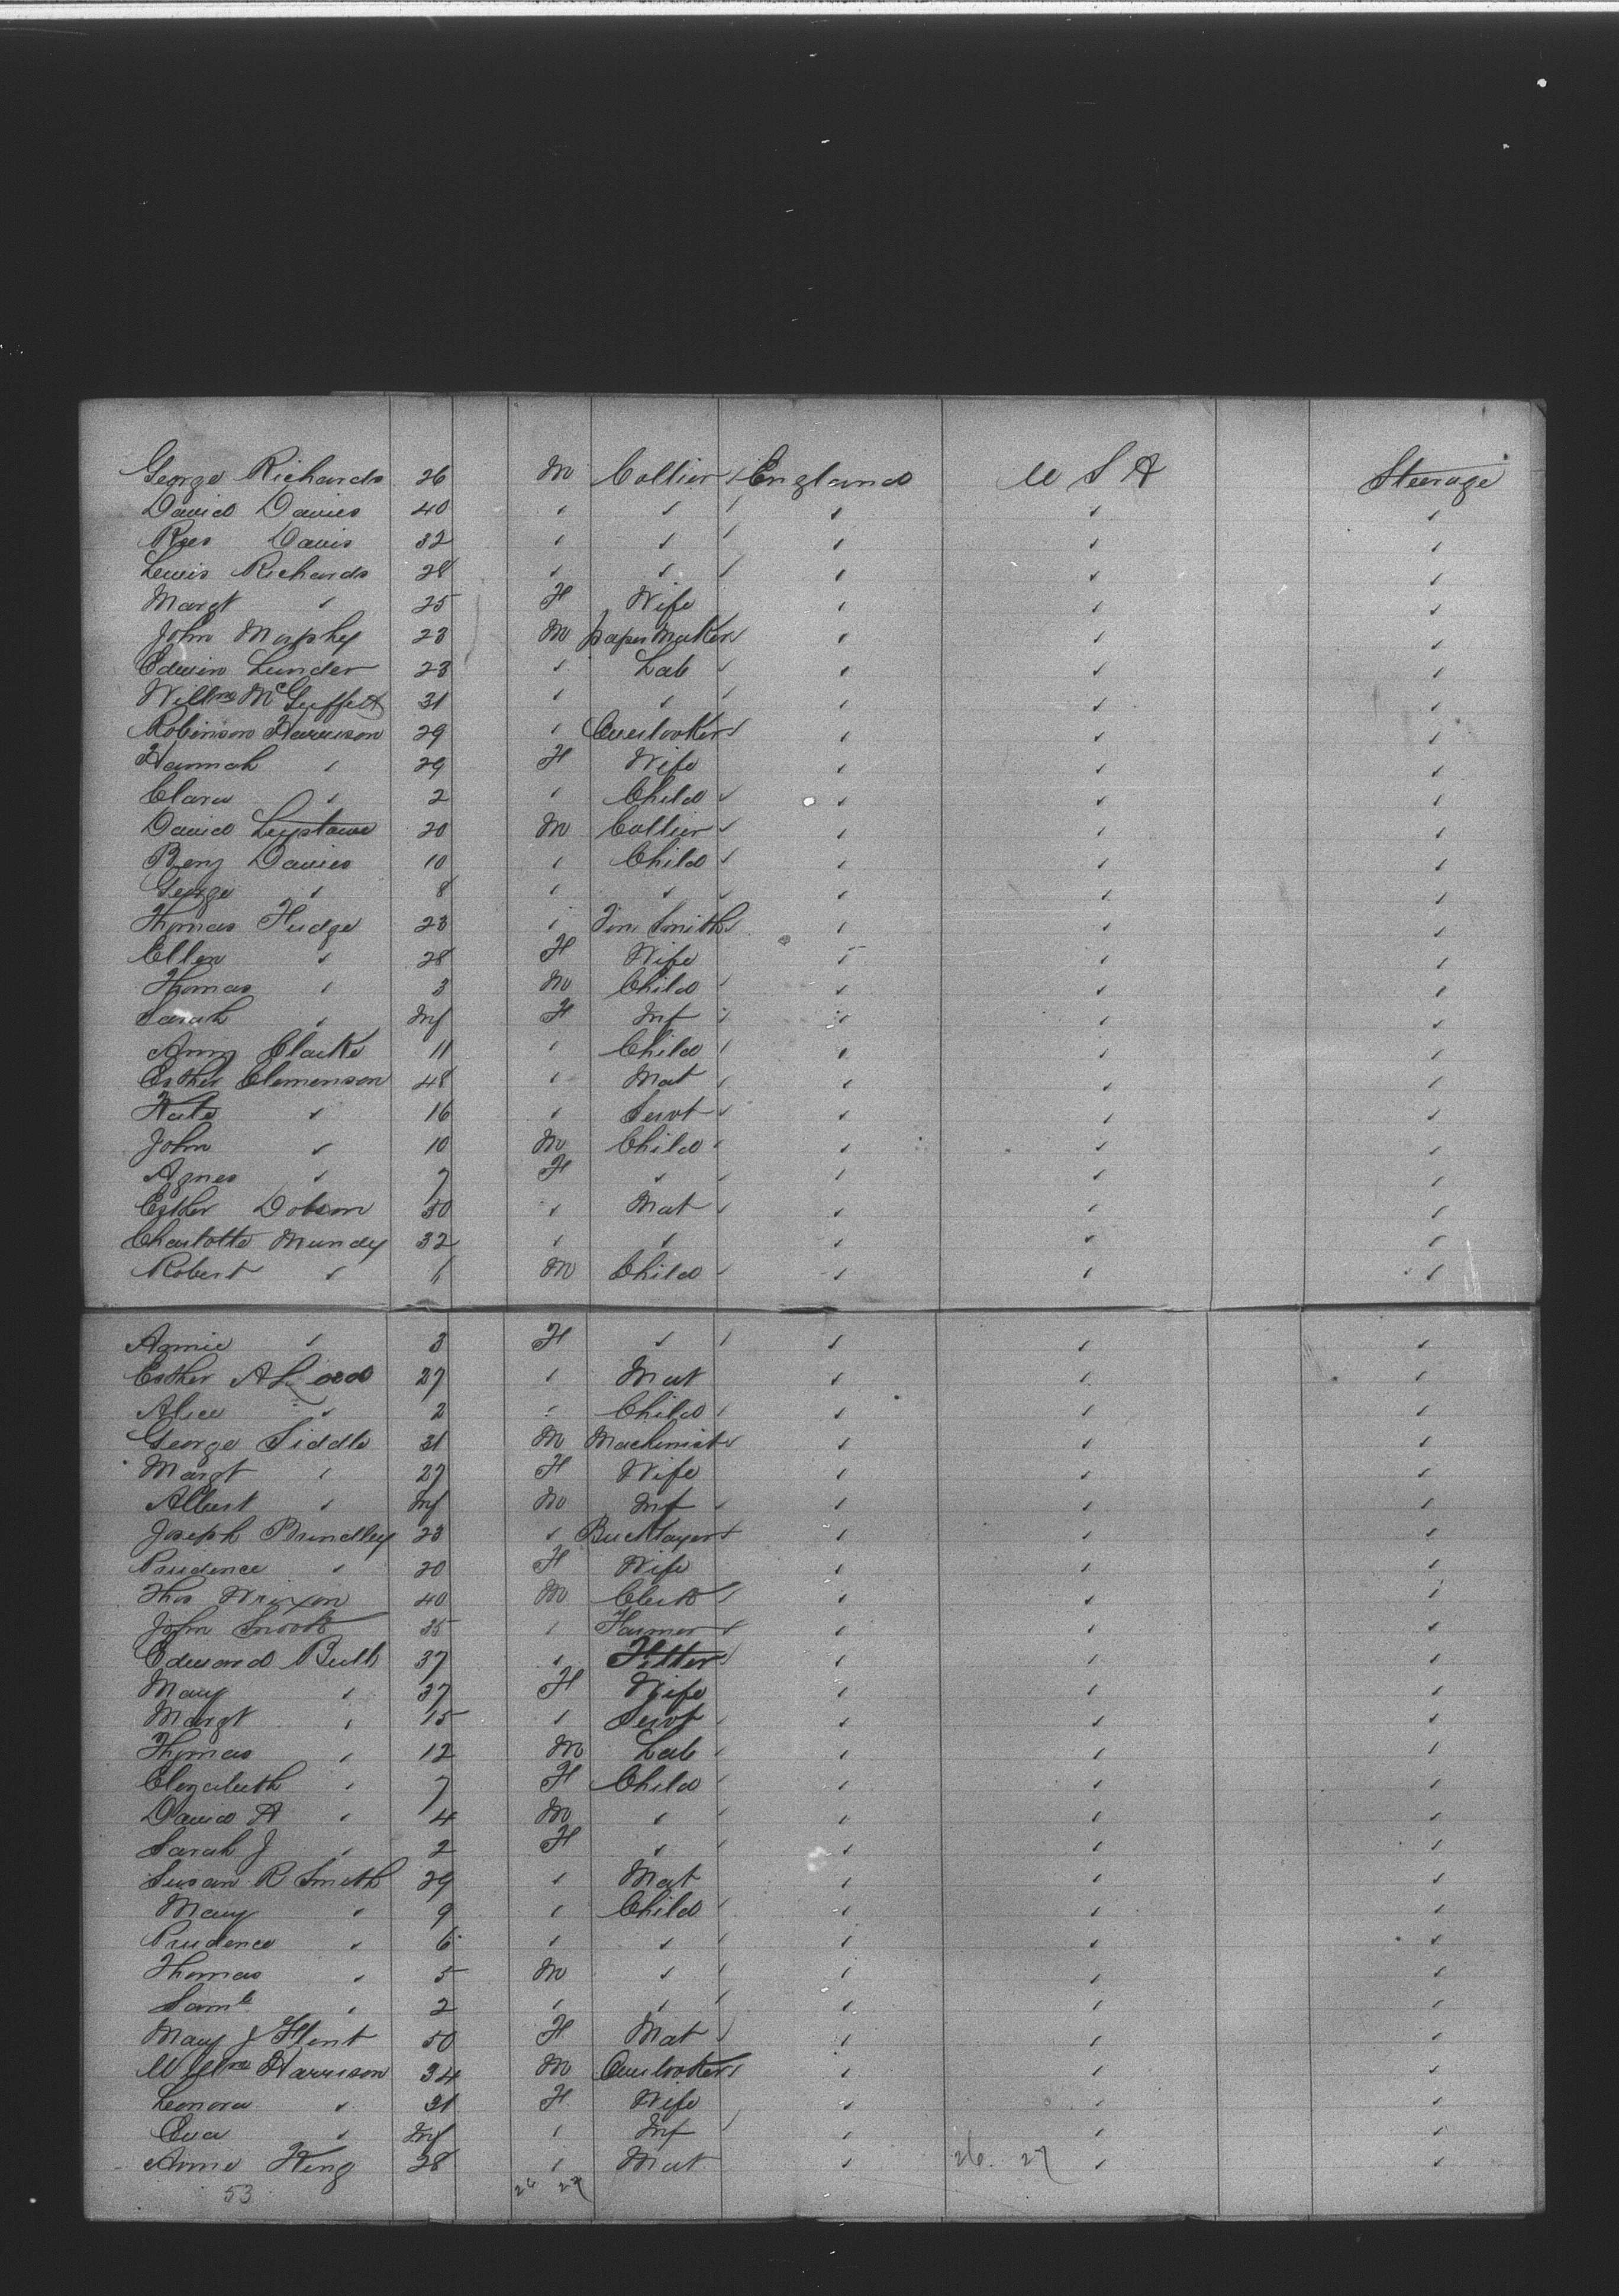 George Richards 26 M Collier England U S A Steerage
David Davies 40 " " " " "
Rees Davis 32 " " " " "
Lewis Richards 28 " " " " "
Margt " 25 F Wife " " "
John Murphy 23 M paper Maker " " "
Edwin Lunder 23 " Lab " " "
Willm 31 " " " " "
Robinson Harrison 29 " Overlooker " " "
Hannah " 29 F Wife " " "
Clara " 2 " Child " " "
David 20 M Collier " " "
Benj Davies 10 " Child " " "
George " 8 " " " " "
Thomas Fudge 23 " Tin Smith " " "
Ellen " 28 F Wife " " "
Thomas " 3 M Child " " "
Sarah " Inf F Inf " " "
Amy Clarke 11 " Child " " "
Esther Clemenson 48 " Mat " " "
Kate " 16 " Servt " " "
John " 10 M Child " " "
Agnes " 7 F " " " "
Esther Dobson 50 " Mat " " "
Charlotte Mundy 32 " " " " "
Robert " M Child " " "
Annie " 3 F " " " "
Esther A 27 " Mat " " "
Alice " 2 " Child " " "
George Siddle 31 M Machinist " " "
Margt " 27 F Wife " " "
Albert " Inf M Inf " " "
Joseph Brindley 23 " Bricklayer " " "
Prudence " 20 F Wife " " "
Thos Wrixon 40 M Clerk " " "
John Snook 35 " Farmer " " "
Edward Bulk 37 " Fitter " " "
Mary " 37 F Wife " " "
Margt " 15 " Servt " " "
Thomas " 12 M Lab " " "
Elizabeth " 7 F Child " " "
David A " 4 M " " " "
Sarah J " 2 F " " " "
Susan B Smith 29 " Mat " " "
Mary " 9 " Child " " "
Prudence " 6 " " " " "
Thomas " 5 M " " " "
Saml " 2 " " " " "
Mary J Flint 50 F Mat " " "
Willm Harrison 34 M Overlooker " " "
Leonora " 31 F Wife " " "
Eva " Inf " Inf " " "
Annie King 28 " Mat " 26. 27 " "
53 26 27